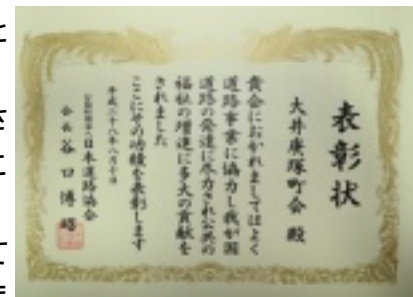 表彰状
大井庚塚町会 殿
貴会におかれましてはよく
道路事業に協力し我が国
道路の発達に尽力され公共の
福祉の増進に多大の貢献を
されました
ここにその功績を表彰します
平成二十八年八月十日
日本道路協会
会長 谷口博昭